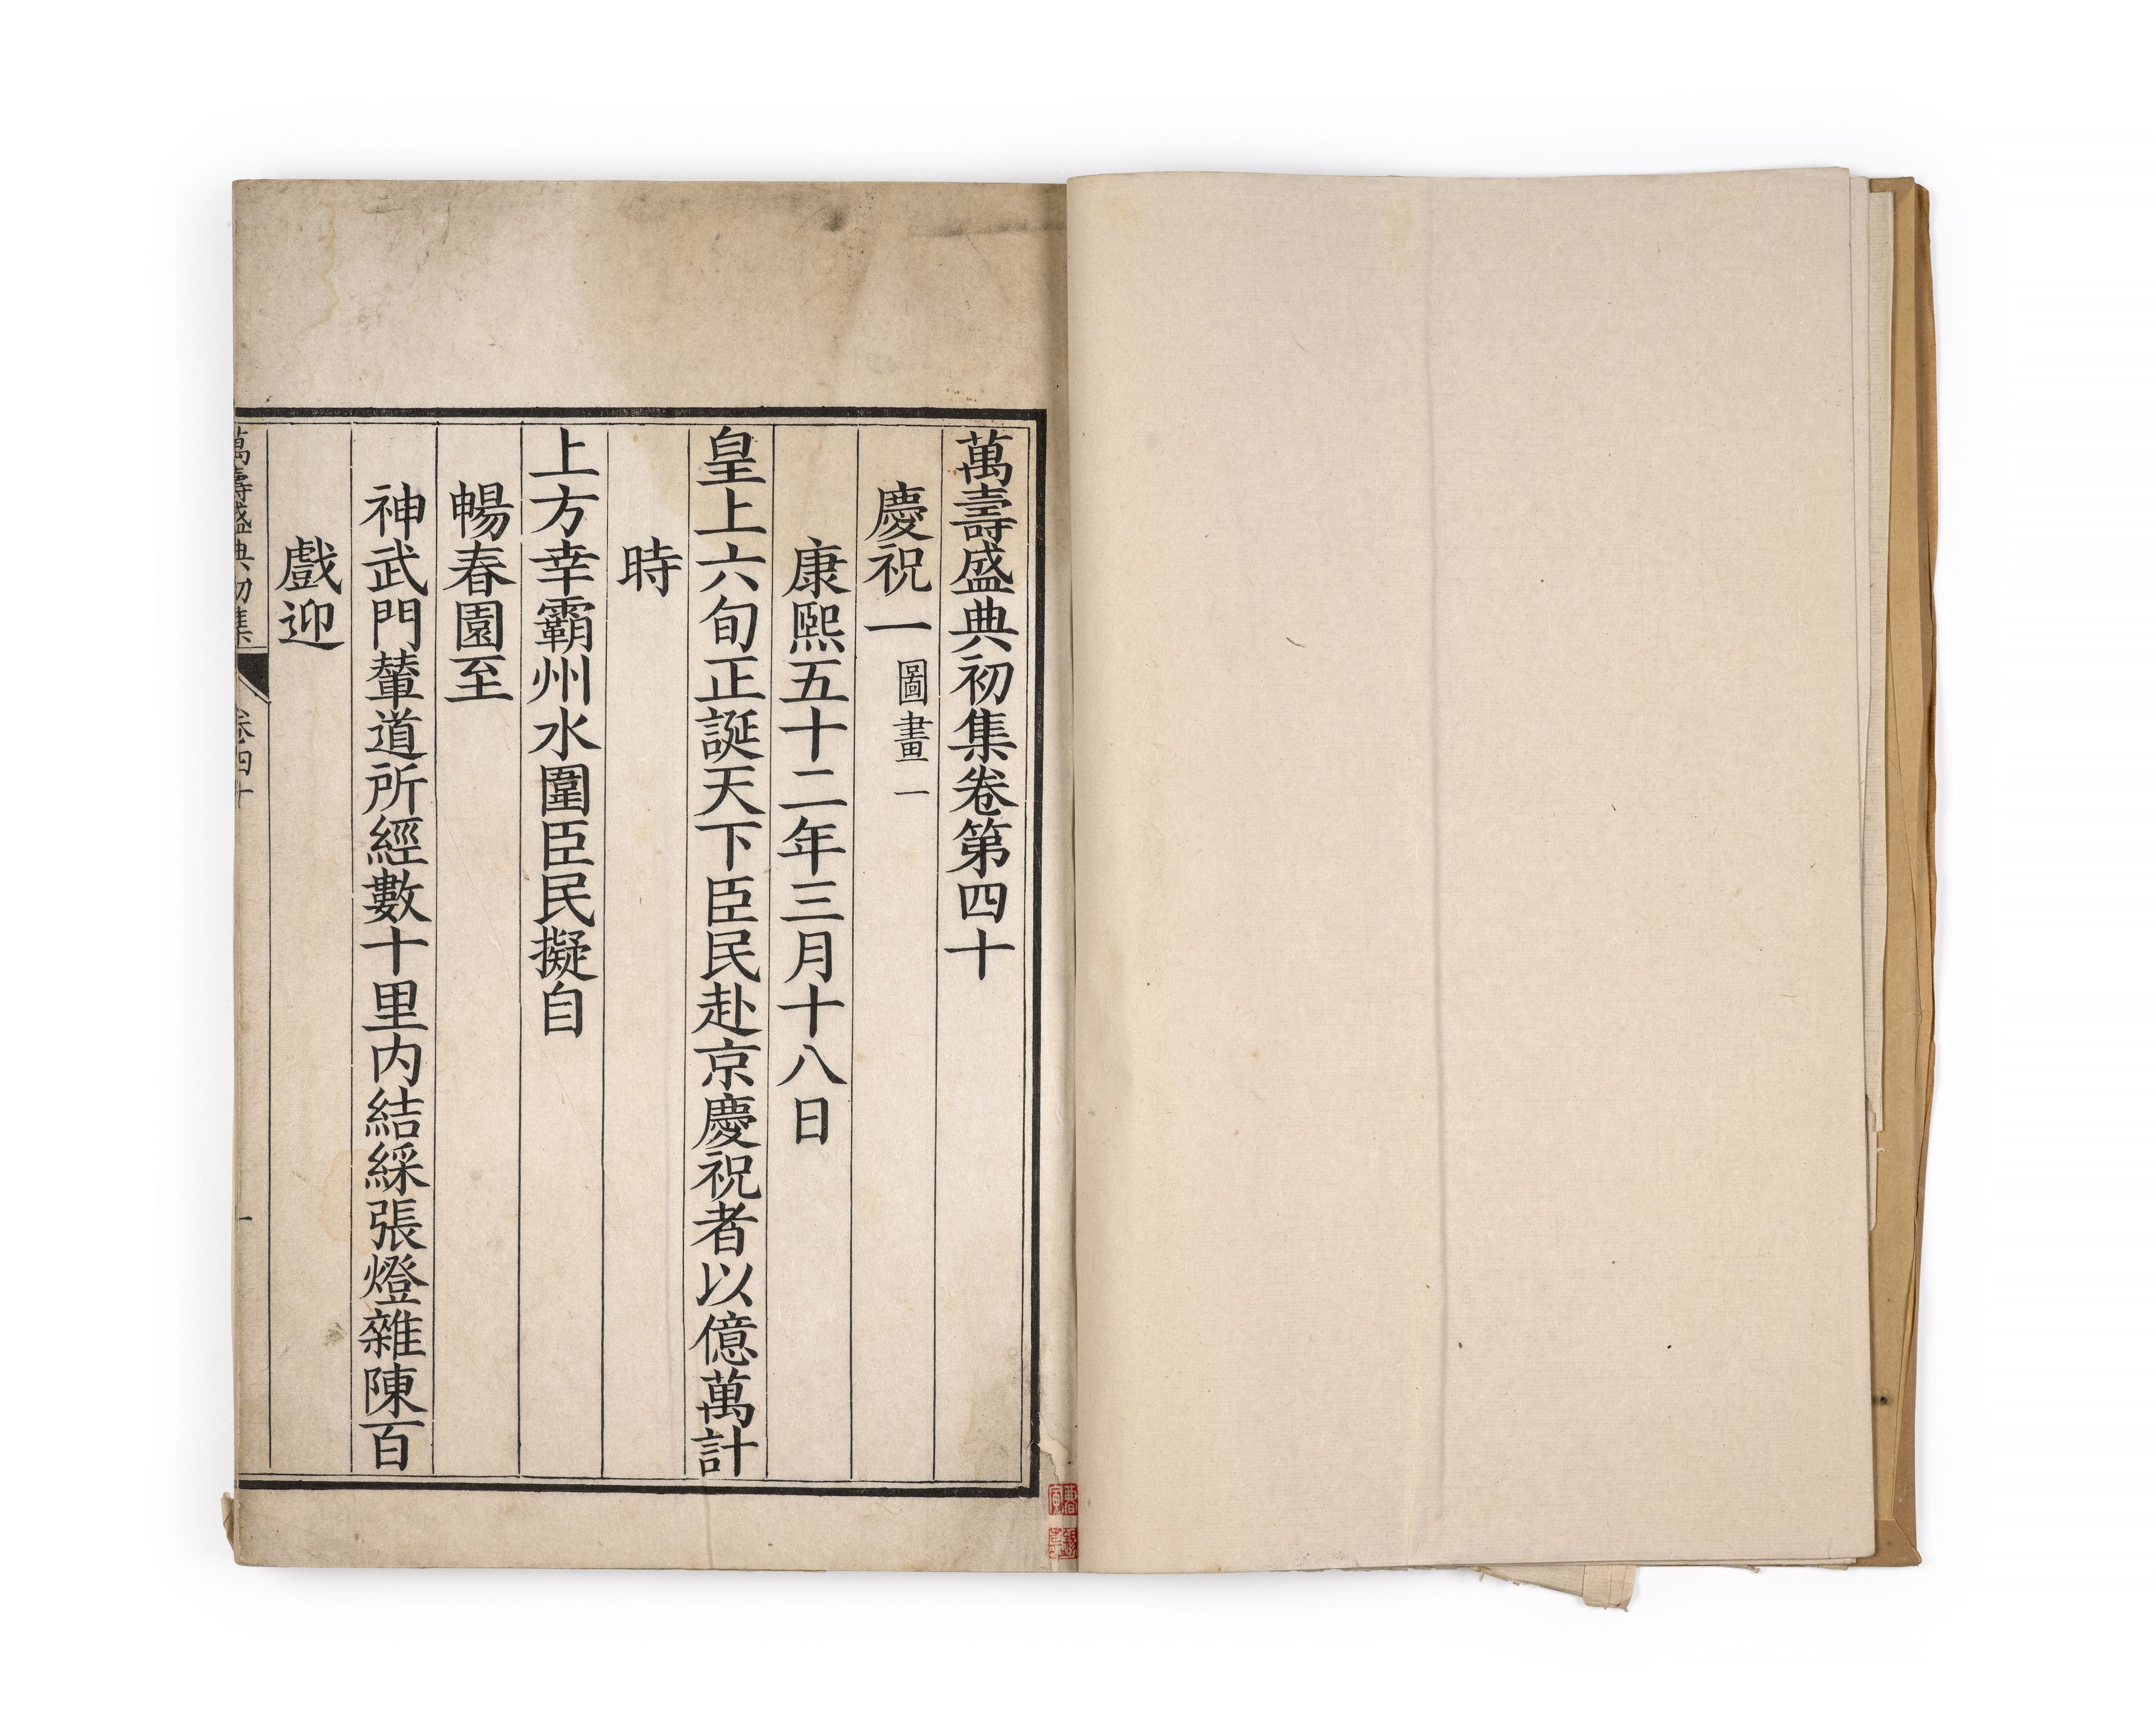 萬壽盛典初集卷第四十
慶祝一 圖畫一
康熙五十二年三月十八日
皇上六旬正誕天下臣民赴京慶祝者以億萬計
時
上方幸霸州水圍臣民擬自
暢春園至
神武門輦道所經數十里内結綵張燈雜陳百
戲迎
萬壽盛典初集 卷四十 一